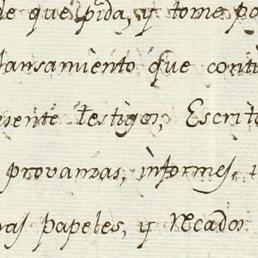 de que pida, y tome po
lansamiento que conti
esente testigos, Escrito
provanzas, informes,
ras papeles, y Recados